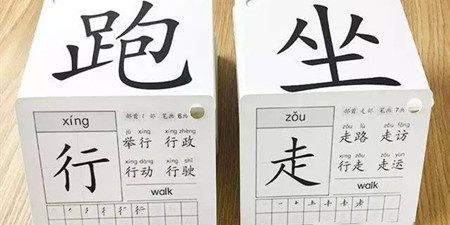 跑
xíng
部首 彳部 笔画 6画
jǔ xíng xíng zhèng
举行 行政
xíng dòng xíng shǐ
行动 行驶
行
walk
坐
zǒu
部首 走部 笔画 7画
zǒu lù zǒu fǎng
走路 走访
xíng zǒu zǒu yùn
行走 走运
走
walk